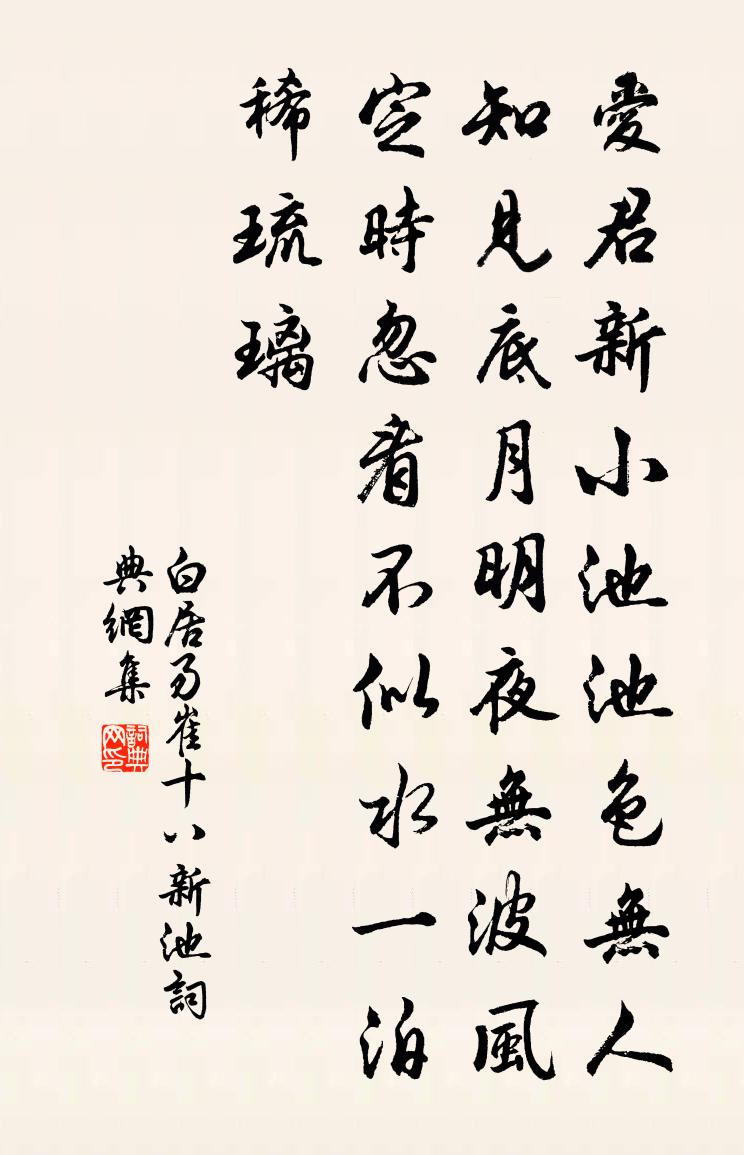 愛君新小池池色無人
知見底月明夜無波風
定時忽看不似水一泊
稀琉璃
白居易崔十八新池詞
典網集
詞典网印